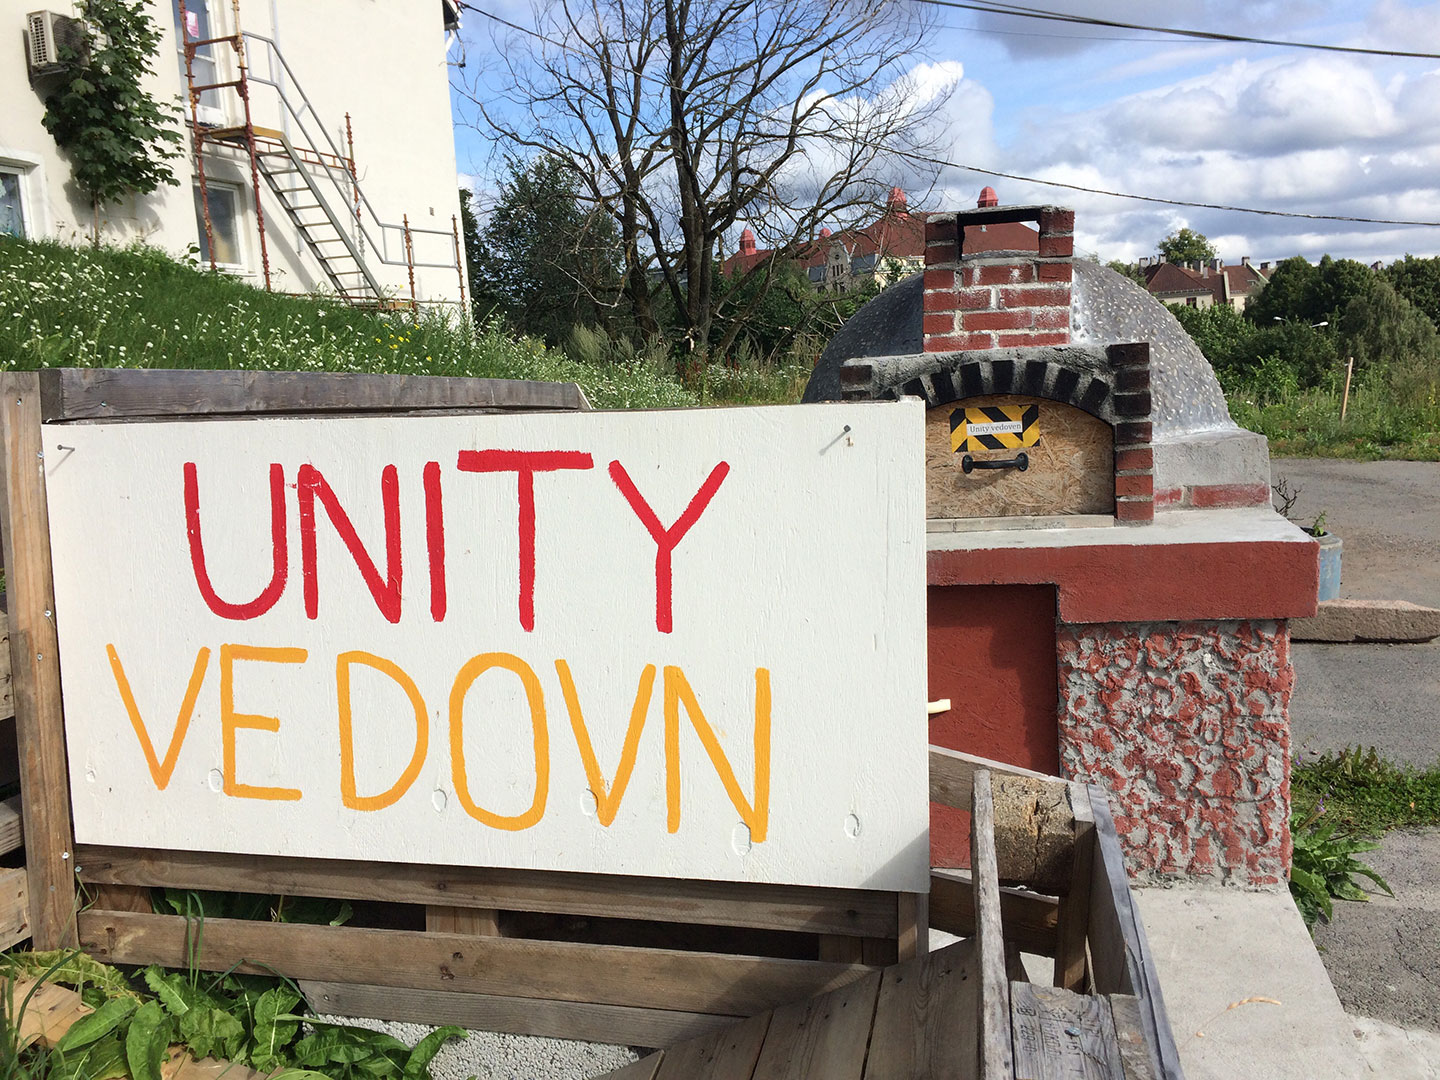 UNITY
VEDOVN
Unity vedoven